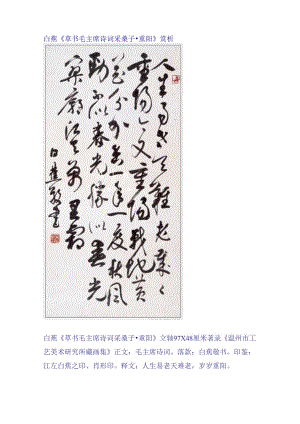 白蕉《草书毛主席诗词采桑子•重阳》赏析
人生易老天难老岁々
重陽今又重陽戰地黄
花分外香一年一度秋风
劲不似春光胜似春光
寥廓江天万里霜
白蕉敬书
白蕉《草书毛主席诗词采桑子•重阳》立轴97X48厘米著录《温州市工
艺美术研究所藏画集》正文：毛主席诗词。落款：白蕉敬书。印鉴：
江左白蕉之印、肖形印。释文：人生易老天难老，岁岁重阳。